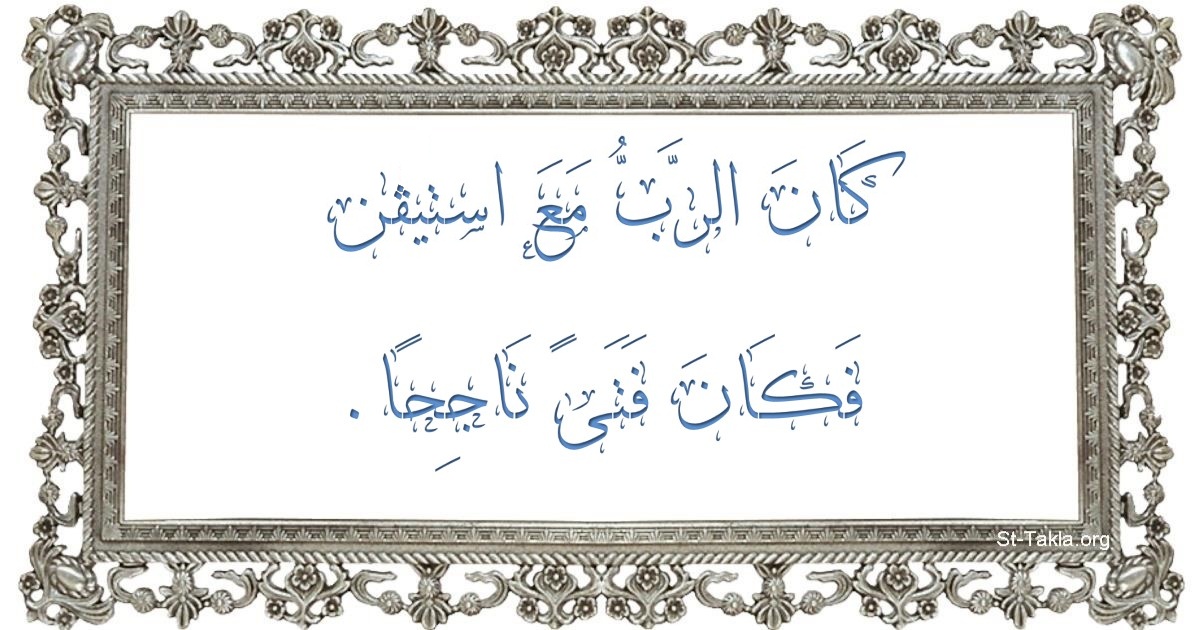 كَانَ الرَّبُّ مَعَ استيڤن
فَكَانَ فَتَىً نَاجِحًا.
St-Takla.org